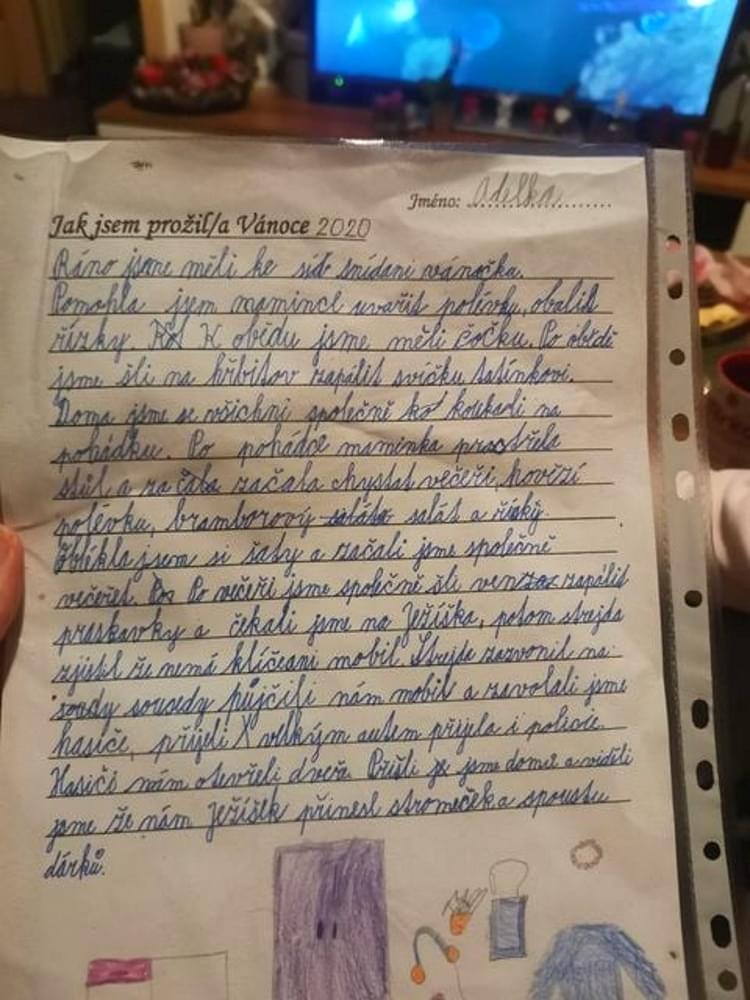 Jméno: Adelka
Jak jsem prožil/a Vánoce 2020
Ráno jsme měli ke sní snídani vánočka.
Pomohla jsem mamince uvařit polévku, obalit
řízky. K obědu jsme měli čočku. Po obědě
jsme šli na hřbitov zapálit svíčku tatínkovi.
Doma jsme se všichni společně koukali na
pohádku. Po pohádce maminka prostřela
stůl a začala chystat večeři, hovězí
polévku, bramborový salát a řízky.
Oblékla jsem si šaty a začali jsme společně
večeřet. Po večeři jsme společně šli ven zapálit
praskavky a čekali jsme na Ježíška, potom strejda
zjistil že nemá klíče ani mobil. Strejda zazvonil na
sousedy půjčili nám mobil a zavolali jsme
hasiče, přijeli velkým autem přijela i policie.
Hasiči nám otevřeli dveře. Přišli jsme domů a viděli
jsme že nám Ježíšek přinesl stromeček a spoustu
dárků.